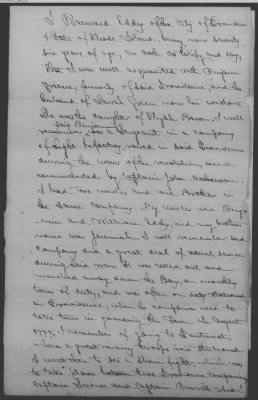 I Barnard Eddy of the City of Providence
& State of Rhode Island, being now seventy
six years of age, on oath do testify and say,
that I was well acquainted with Benjamin
Green, formerly of said Providence, and the
husband of Sarah Green now his widow.
She was the daughter of Elijah Bacon. I well
remember said Benjamin was a Sergeant in a company
of Light Infantry raised in said Providence
during the war of the revolution, and
commanded by Captain John
I had two uncles and one Brother in
the same Company. My uncles were Benja
min and William Eddy, and my brothers
name was Jeremiah. I well remember said
Company did a great deal of actual service
during said war. It was called out and
marched away down the Bay, on monthly
tours of duty, and was often on duty stationed
in Providence, when the company used to
take turn in guarding the Town. In August
1777, I remember of going to Pawtuxet,
where a great many troops were stationed.
I went there to see a sham fight which was
to take place between two Providence Companies,
Captain and Captain